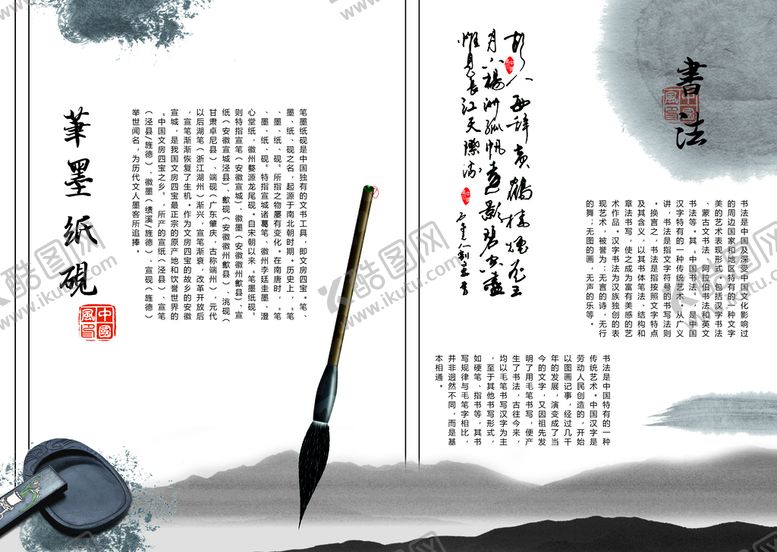 筆墨紙硯
中國風
笔墨纸砚是中国独有的文书工具，即文房四宝。笔、
墨、纸、砚之名，起源于南北朝时期。历史上，“笔
、墨、纸、砚”所指之物屡有变化。在南唐时，“笔
、墨、纸、砚”特指宣城诸葛笔、徽州李廷圭墨、澄
心堂纸、徽州婺源龙尾砚。自宋朝以来，“笔墨纸砚”
则特指宣笔（安徽宣城）、徽墨（安徽徽州歙县）、宣
纸（安徽宣城泾县）、歙砚（安徽徽州歙县）、洮砚（
甘肃卓尼县）、端砚（广东肇庆，古称端州），元代
以后湖笔（浙江湖州）渐兴，宣笔渐衰，改革开放后
，宣笔渐渐恢复了生机。作为文房四宝的故乡的安徽
宣城，是我国文房四宝最正宗的原产地和饮誉世界的
“中国文房四宝之乡”，所产的宣纸（泾县）、宣笔
（泾县/旌德）、徽墨（绩溪/旌德）、宣砚（旌德）
举世闻名，为历代文人墨客所追捧。
書法
中國風
书法是中国及深受中国文化影响过
的周边国家和地区特有的一种文字
美的艺术表现形式。包括汉字书法
、蒙古文书法、阿拉伯书法和英文
书法等。其“中国书法”，是中国
汉字特有的一种传统艺术。从广义
讲，书法是指文字符号的书写法则
。换言之，书法是指按照文字特点
及其含义，以其书体笔法、结构和
章法书写，使之成为富有美感的艺
术作品。汉字书法为汉族独创的表
现艺术，被誉为：无言的诗，无行
的舞；无图的画，无声的乐等。
故人西辞黄鹤楼烟花三
月下揚洲孤帆遠影碧空盡
惟見長江天際流
书法是中国特有的一种
传统艺术。中国汉字是
劳动人民创造的，开始
以图画记事，经过几千
年的发展，演变成了当
今的文字，又因祖先发
明了用毛笔书写，便产
生了书法，古往今来，
均以毛笔书写汉字为主
，至于其他书写形式，
如硬笔、指书等，其书
写规律与毛笔字相比，
并非迥然不同，而是基
本相通。
千库图网
www.ikutu.com